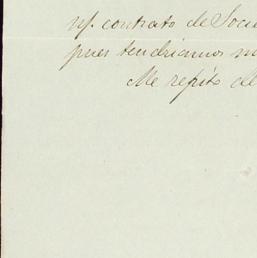 n/. contrato de Socie
pues tendriamos
Me repito de